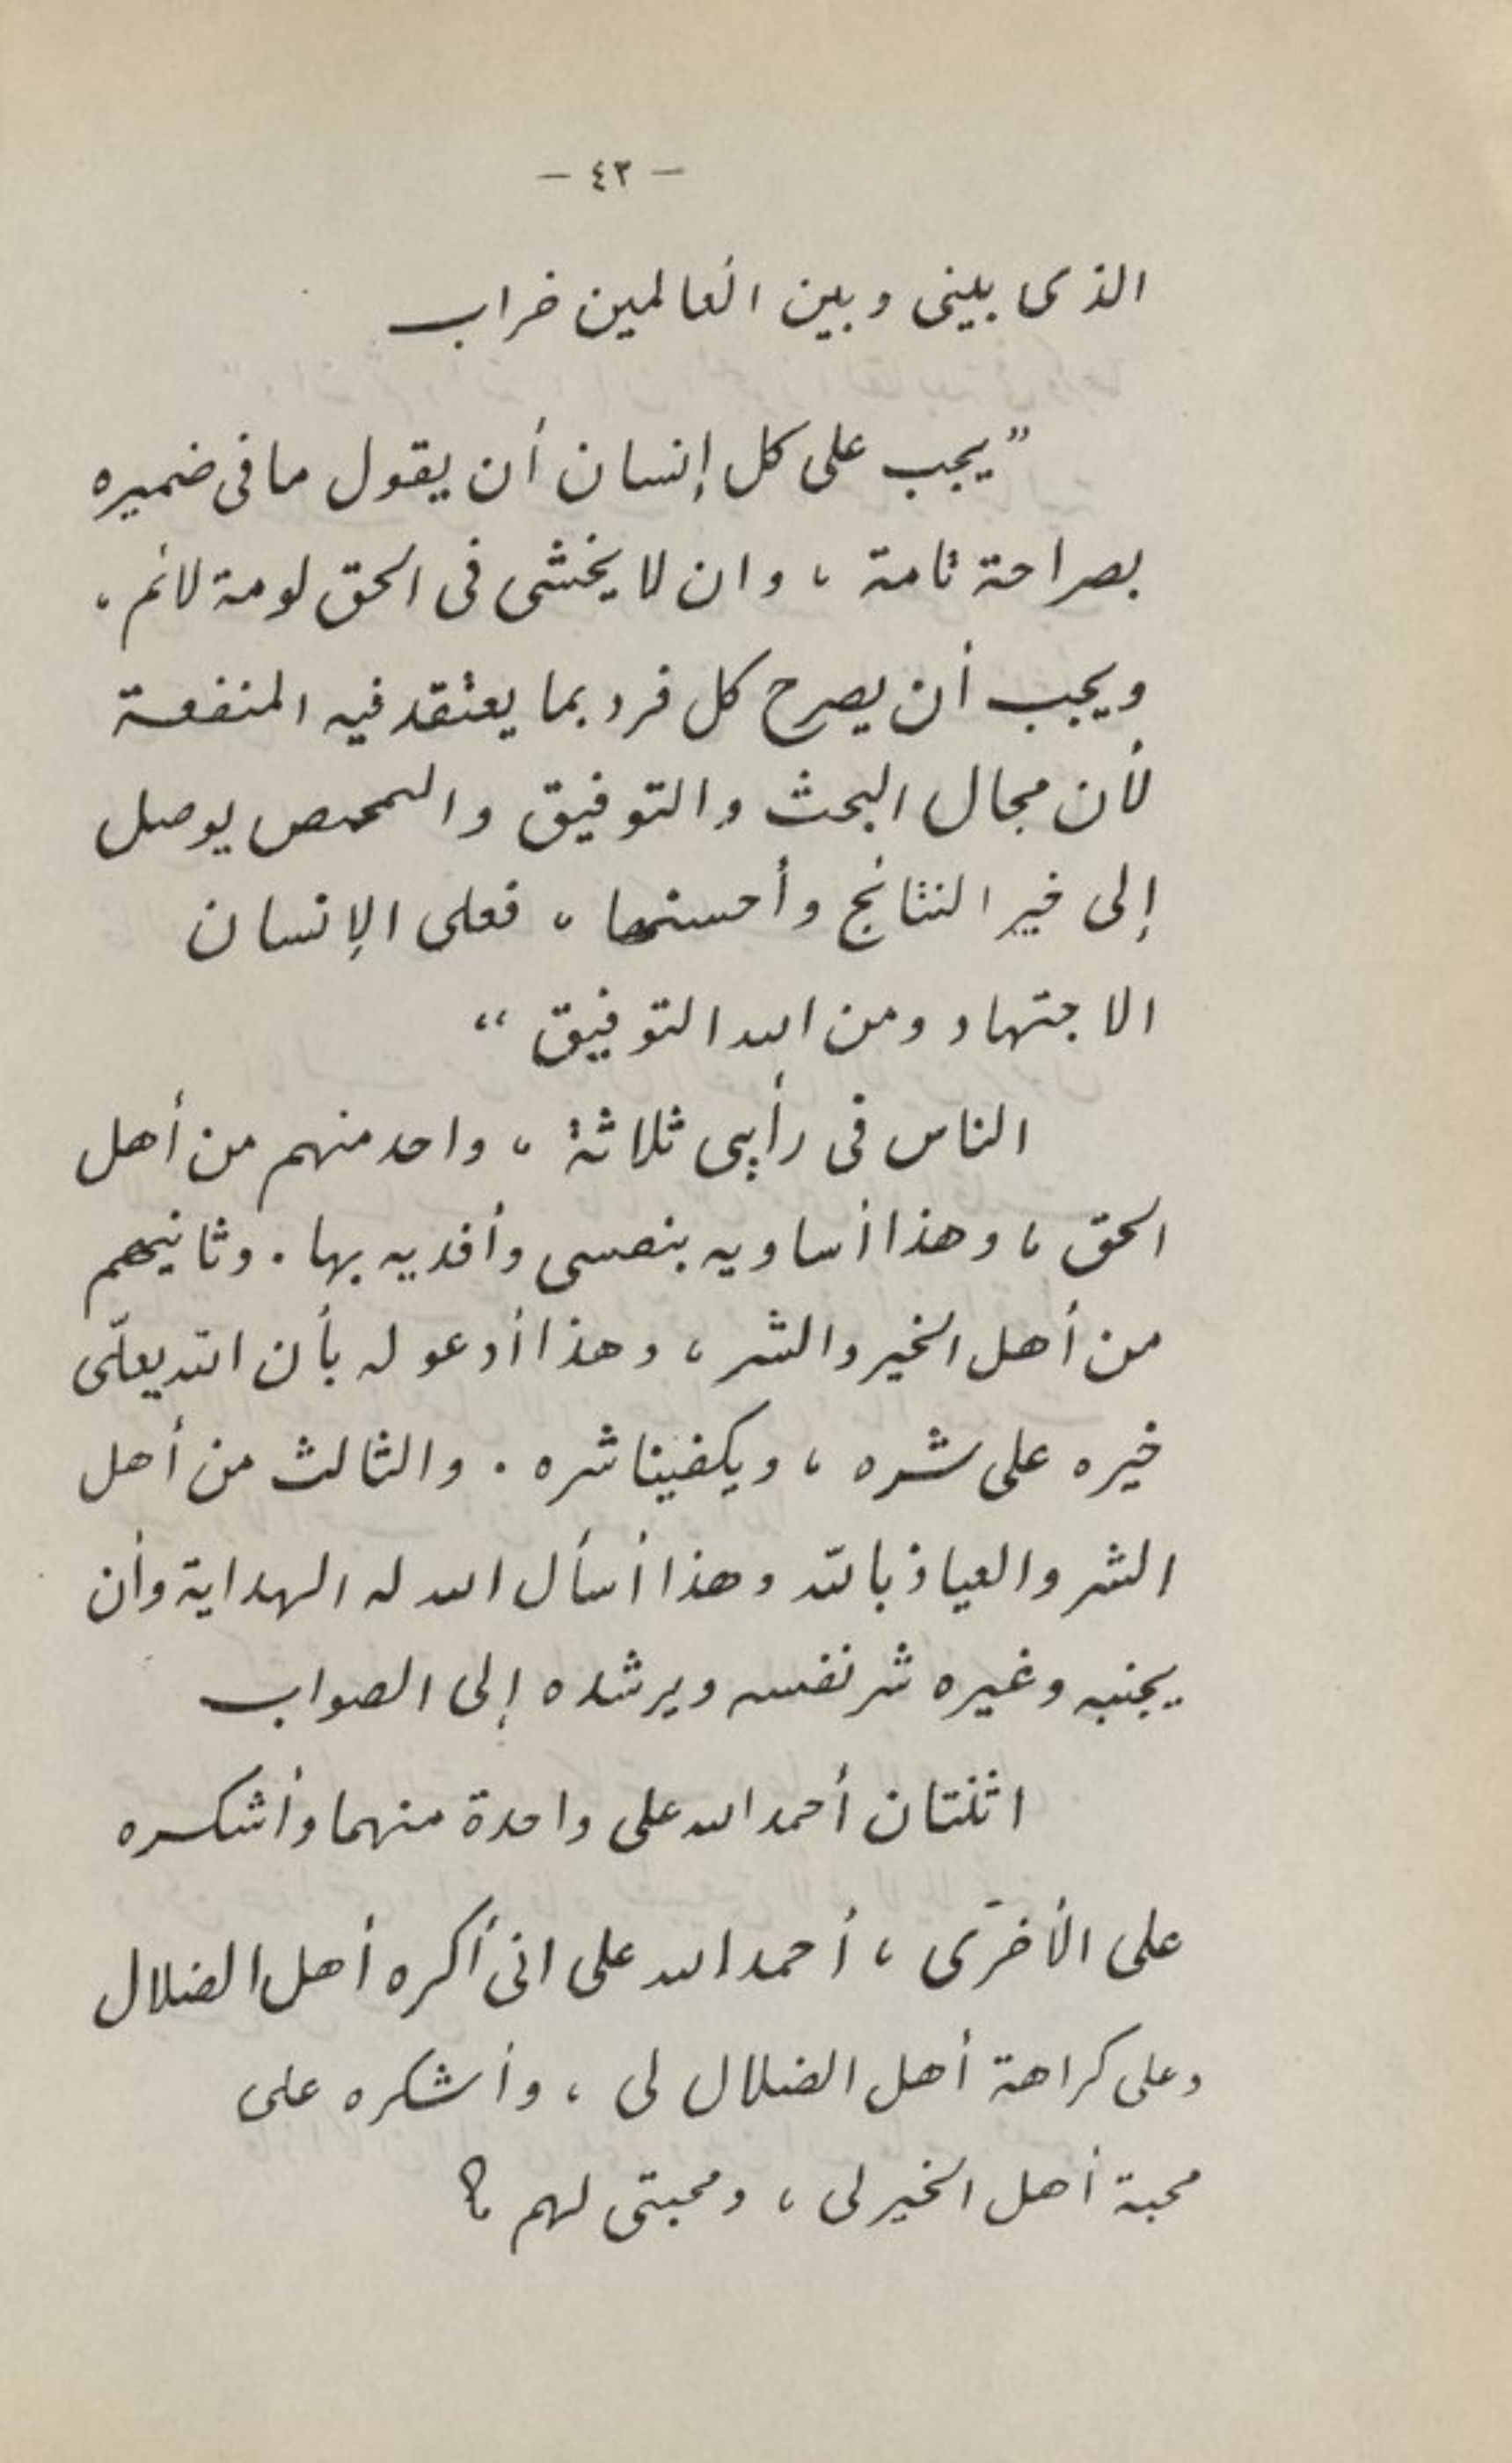 - ٤٣ -
الذى بينى وبين العالمين خراب
"يجب على كل إنسان أن يقول ما فى ضميره
بصراحة تامة ، وان لا يخشى فى الحق لومة لائم ،
ويجب أن يصرح كل فرد بما يعتقد فيه المنفعة
لأن مجال البحث والتوفيق والتمحيص يوصل
إلى خير النتائج وأحسنها ، فعلى الإنسان
الاجتهاد ومن الله التوفيق "
الناس فى رأيى ثلاثة ، واحد منهم من أهل
الحق ، وهذا أساويه بنفسى وأفديه بها . وثانيهم
من أهل الخير والشر ، وهذا أدعو له بأن الله يعلّى
خيره على شره ، ويكفينا شره . والثالث من أهل
الشر والعياذ بالله وهذا أسأل الله له الهداية وأن
يجنبه وغيره شر نفسه ويرشده إلى الصواب
اثنتان أحمد الله على واحدة منهما وأشكره
على الأخرى ، أحمد الله على انى أكره أهل الضلال
وعلى كراهة أهل الضلال لى ، وأشكره على
محبة أهل الخير لى ، ومحبتى لهم ؟